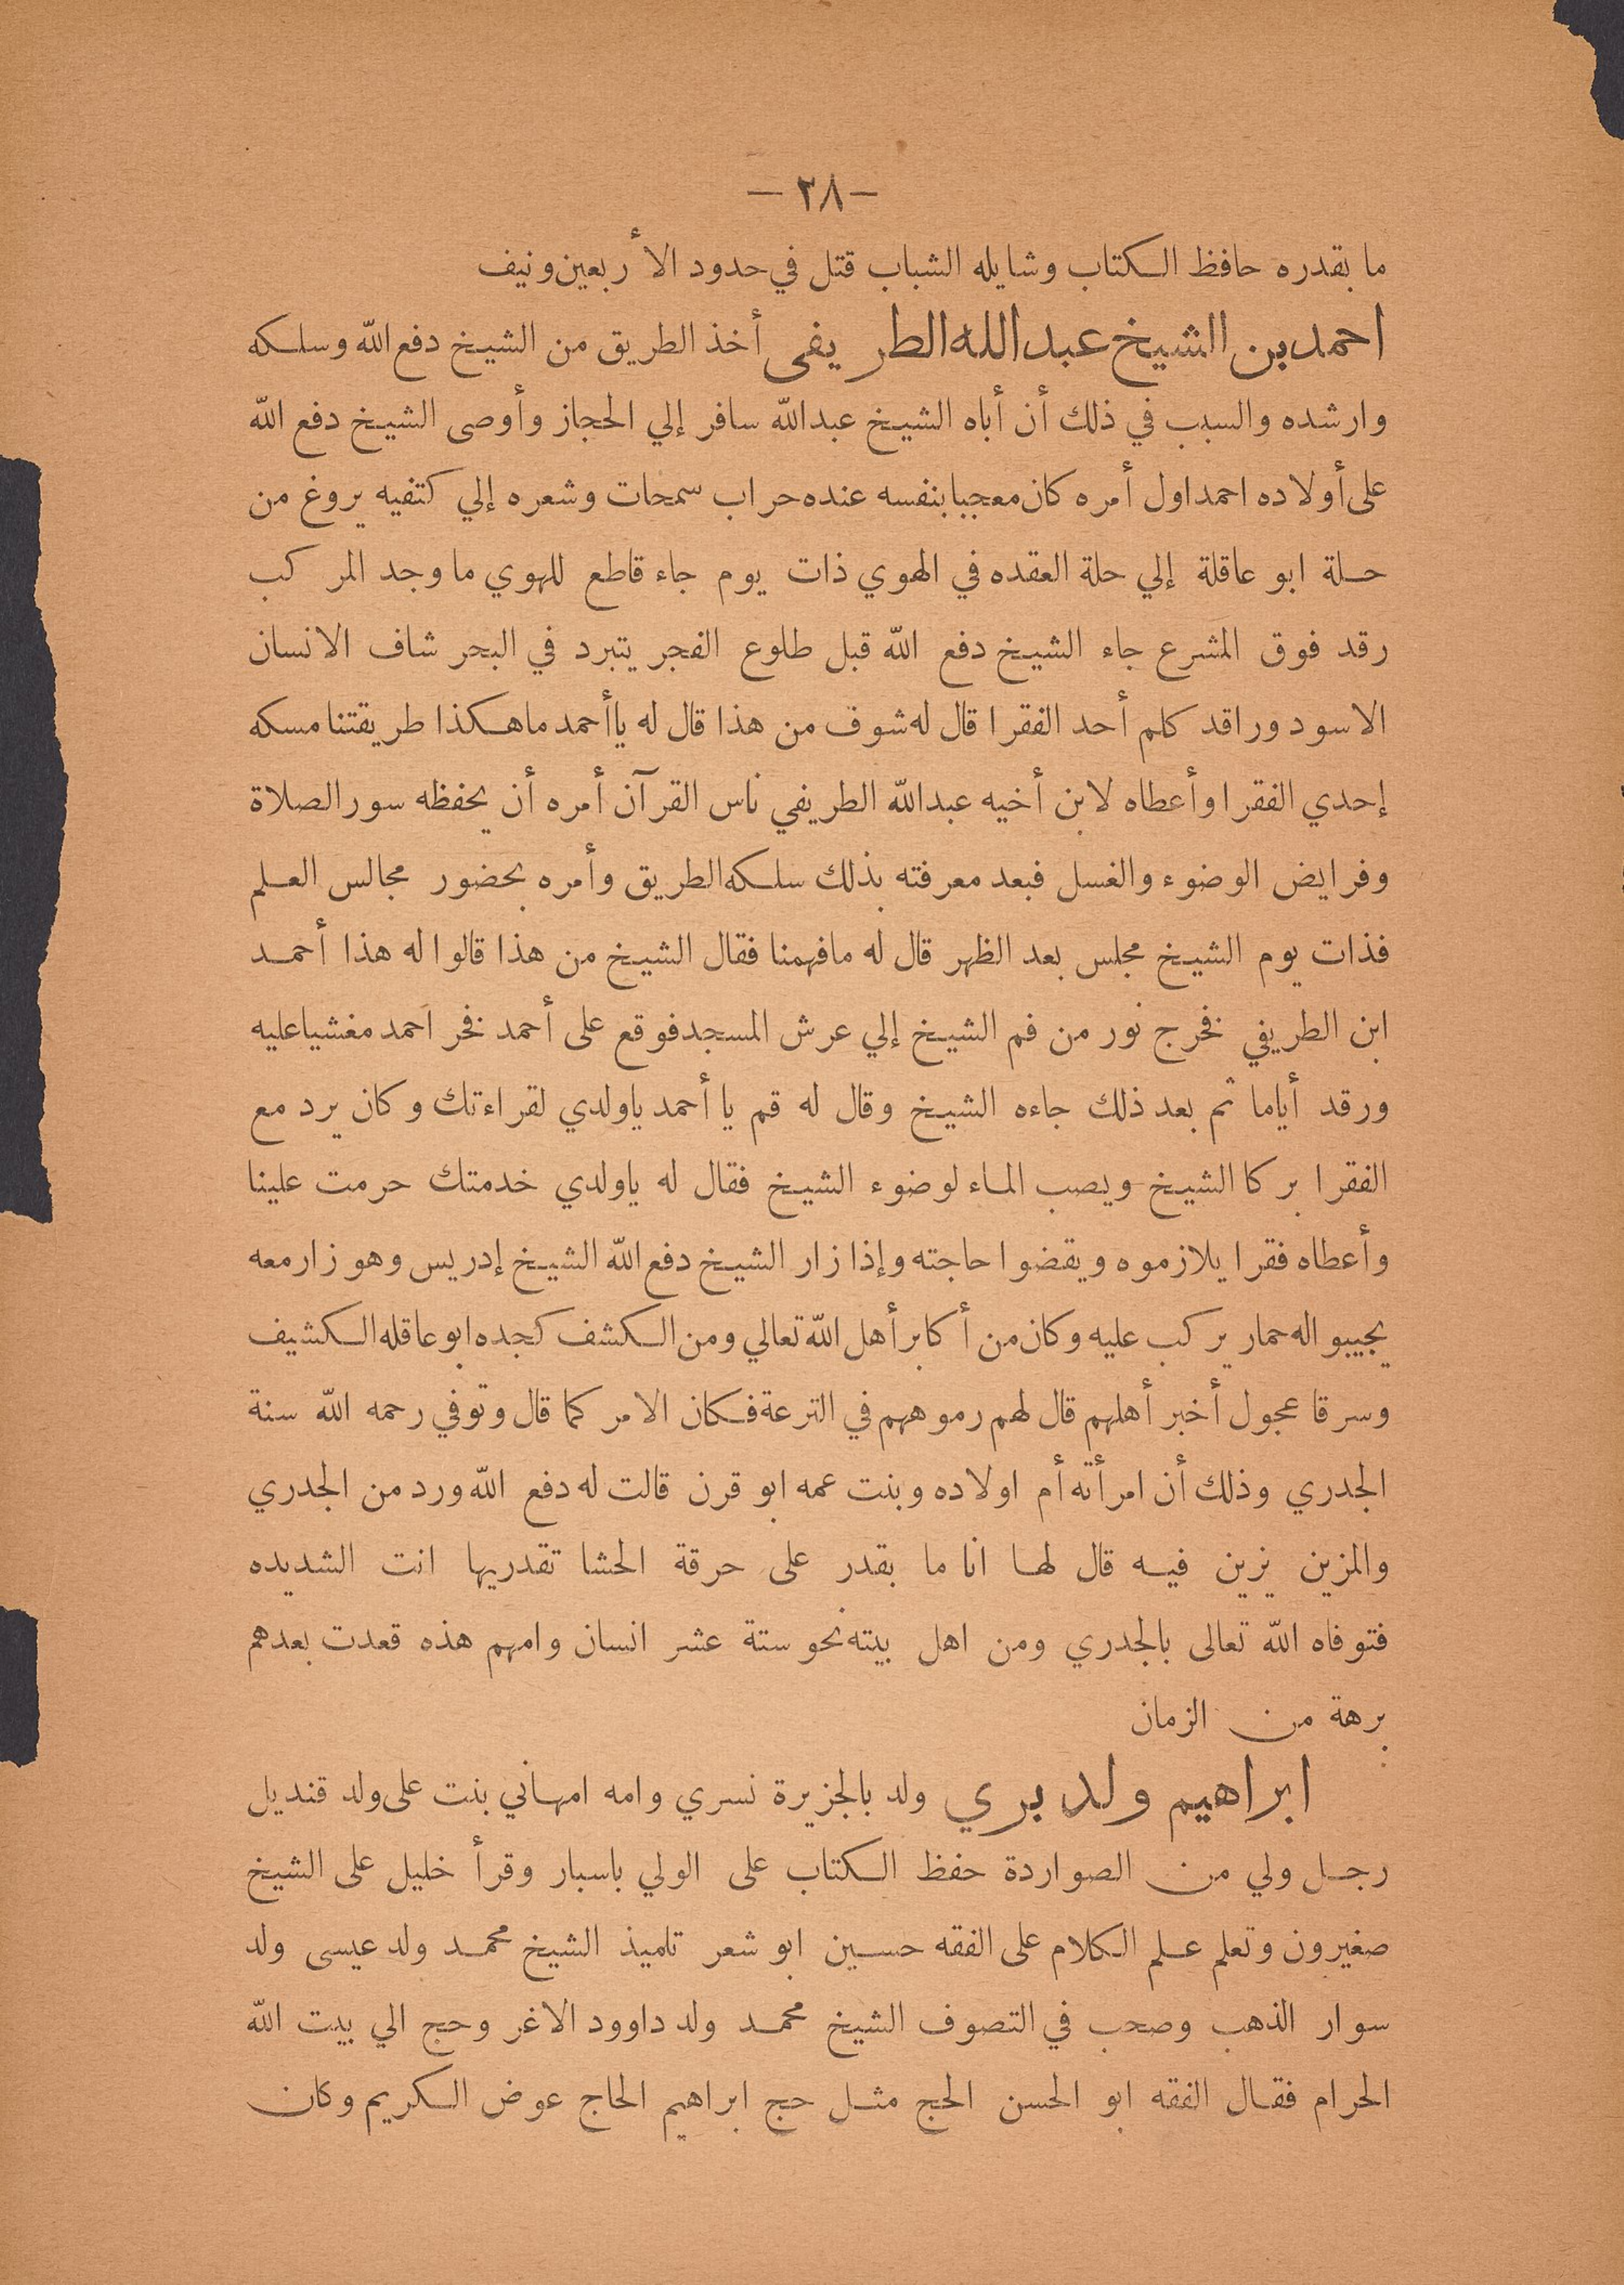 — ٢٨ —
ما بقدره حافظ الكتاب وشايله الشباب قتل في حدود الأربعين ونيف
احمد بن الشيخ عبد الله الطريفى أخذ الطريق من الشيخ دفع الله وسلكه
وارشده والسبب في ذلك أن أباه الشيخ عبدالله سافر إلي الحجاز وأوصى الشيخ دفع الله
على أولاده احمد اول أمره كان معجبا بنفسه عنده حراب سمحات وشعره إلي كتفيه يروغ من
حلة ابو عاقلة إلي حلة العقده في الهوي ذات يوم جاء قاطع للهوي ما وجد المركب
رقد فوق المشرع جاء الشيخ دفع الله قبل طلوع الفجر يتبرد في البحر شاف الانسان
الاسود وراقد كلم أحد الفقرا قال له شوف من هذا قال له ياأحمد ماهكذا طريقتنا مسكه
إحدي الفقرا وأعطاه لابن أخيه عبدالله الطريفي ناس القرآن أمره أن يحفظه سور الصلاة
وفرايض الوضوء والغسل فبعد معرفته بذلك سلكه الطريق وأمره بحضور مجالس العلم
فذات يوم الشيخ مجلس بعد الظهر قال له مافهمنا فقال الشيخ من هذا قالوا له هذا أحمد
ابن الطريفي فخرج نور من فم الشيخ إلي عرش المسجد فوقع على أحمد فخر أحمد مغشيا عليه
ورقد أياما ثم بعد ذلك جاءه الشيخ وقال له قم يا أحمد ياولدي لقراءتك وكان يرد مع
الفقرا بركا الشيخ ويصب الماء لوضوء الشيخ فقال له ياولدي خدمتك حرمت علينا
وأعطاه فقرا يلازموه ويقضوا حاجته وإذا زار الشيخ دفع الله الشيخ إدريس وهو زار معه
يجيبوا له حمار يركب عليه وكان من أكابر أهل الله تعالي ومن الكشف كجده ابو عاقله الكشيف
وسرقا عجول أخبر أهلهم قال لهم رموههم في الترعة فكان الامر كما قال وتوفي رحمه الله سنة
الجدري وذلك أن امرأته أم اولاده وبنت عمه ابو قرن قالت له دفع الله ورد من الجدري
والمزين يزين فيه قال لها انا ما بقدر على حرقة الحشا تقدريها انت الشديده
فتوفاه الله تعالى بالجدري ومن اهل بيته نحو ستة عشر انسان وامهم هذه قعدت بعدهم
برهة من الزمان
ابراهيم ولد بري ولد بالجزيرة نسري وامه امهاني بنت على ولد قنديل
رجل ولي من الصواردة حفظ الكتاب على الولي باسبار وقرأ خليل على الشيخ
صغيرون وتعلم علم الكلام على الفقه حسين ابو شعر تلميذ الشيخ محمد ولد عيسى ولد
سوار الذهب وصحب في التصوف الشيخ محمد ولد داوود الاغر وحج الي بيت الله
الحرام فقال الفقه ابو الحسن الحج مثل حج ابراهيم الحاج عوض الكريم وكان